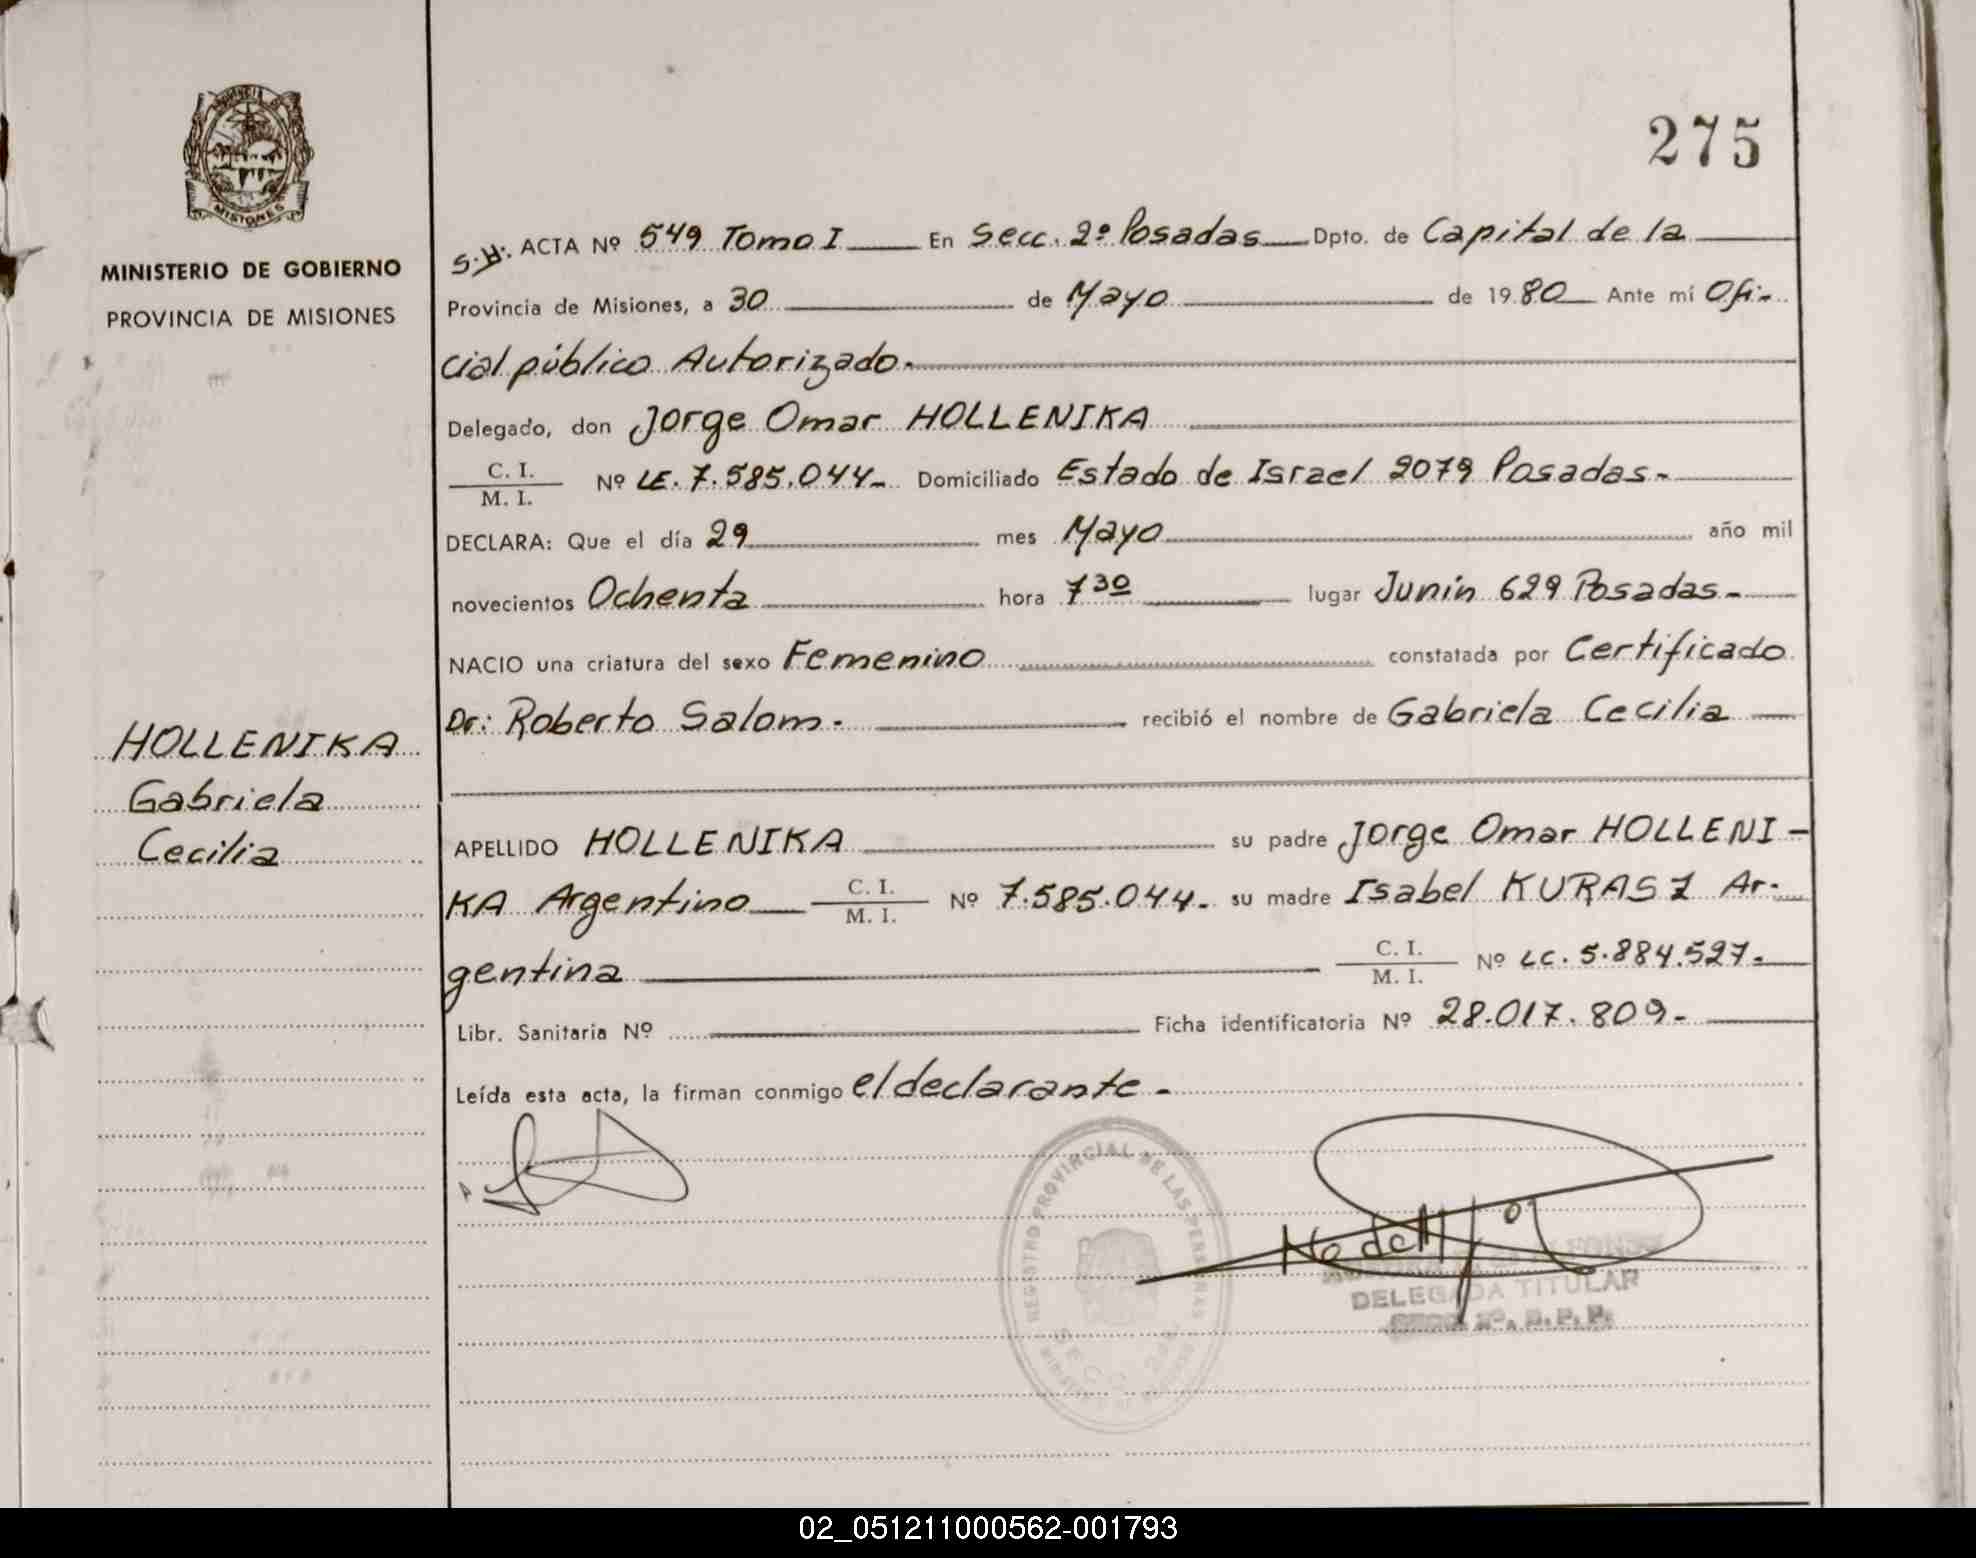 275
PROVINCIA DE
MISIONES
MINISTERIO DE GOBIERNO
PROVINCIA DE MISIONES
HOLLENIKA
Gabriela
Cecilia
S.H. ACTA Nº 549 Tomo I En Secc. 2º Posadas Dpto. de Capital de la
Provincia de Misiones, a 30 de Mayo de 1980 Ante mí Ofi-
cial público Autorizado.
Delegado, don Jorge Omar HOLLENIKA
C. I.
M. I. Nº LE. 7.585.044- Domiciliado Estado de Israel 2079 Posadas-
DECLARA: Que el día 29 mes Mayo año mil
novecientos Ochenta hora 7 30 lugar Junin 629 Posadas-
NACIO una criatura del sexo Femenino constatada por Certificado
Dr: Roberto Salom. recibió el nombre de Gabriela Cecilia
APELLIDO HOLLENIKA su padre Jorge Omar HOLLENI-
KA Argentino C. I.
M. I. Nº 7.585.044. su madre Isabel KURASZ Ar-
gentina C. I.
M. I. Nº LC. 5.884.527-
Libr. Sanitaria Nº Ficha identificatoria Nº 28.017.809-
Leída esta acta, la firman conmigo el declarante-
REGISTRO PROVINCIAL DE LAS PERSONAS
DELEGADA TITULAR
02_051211000562-001793